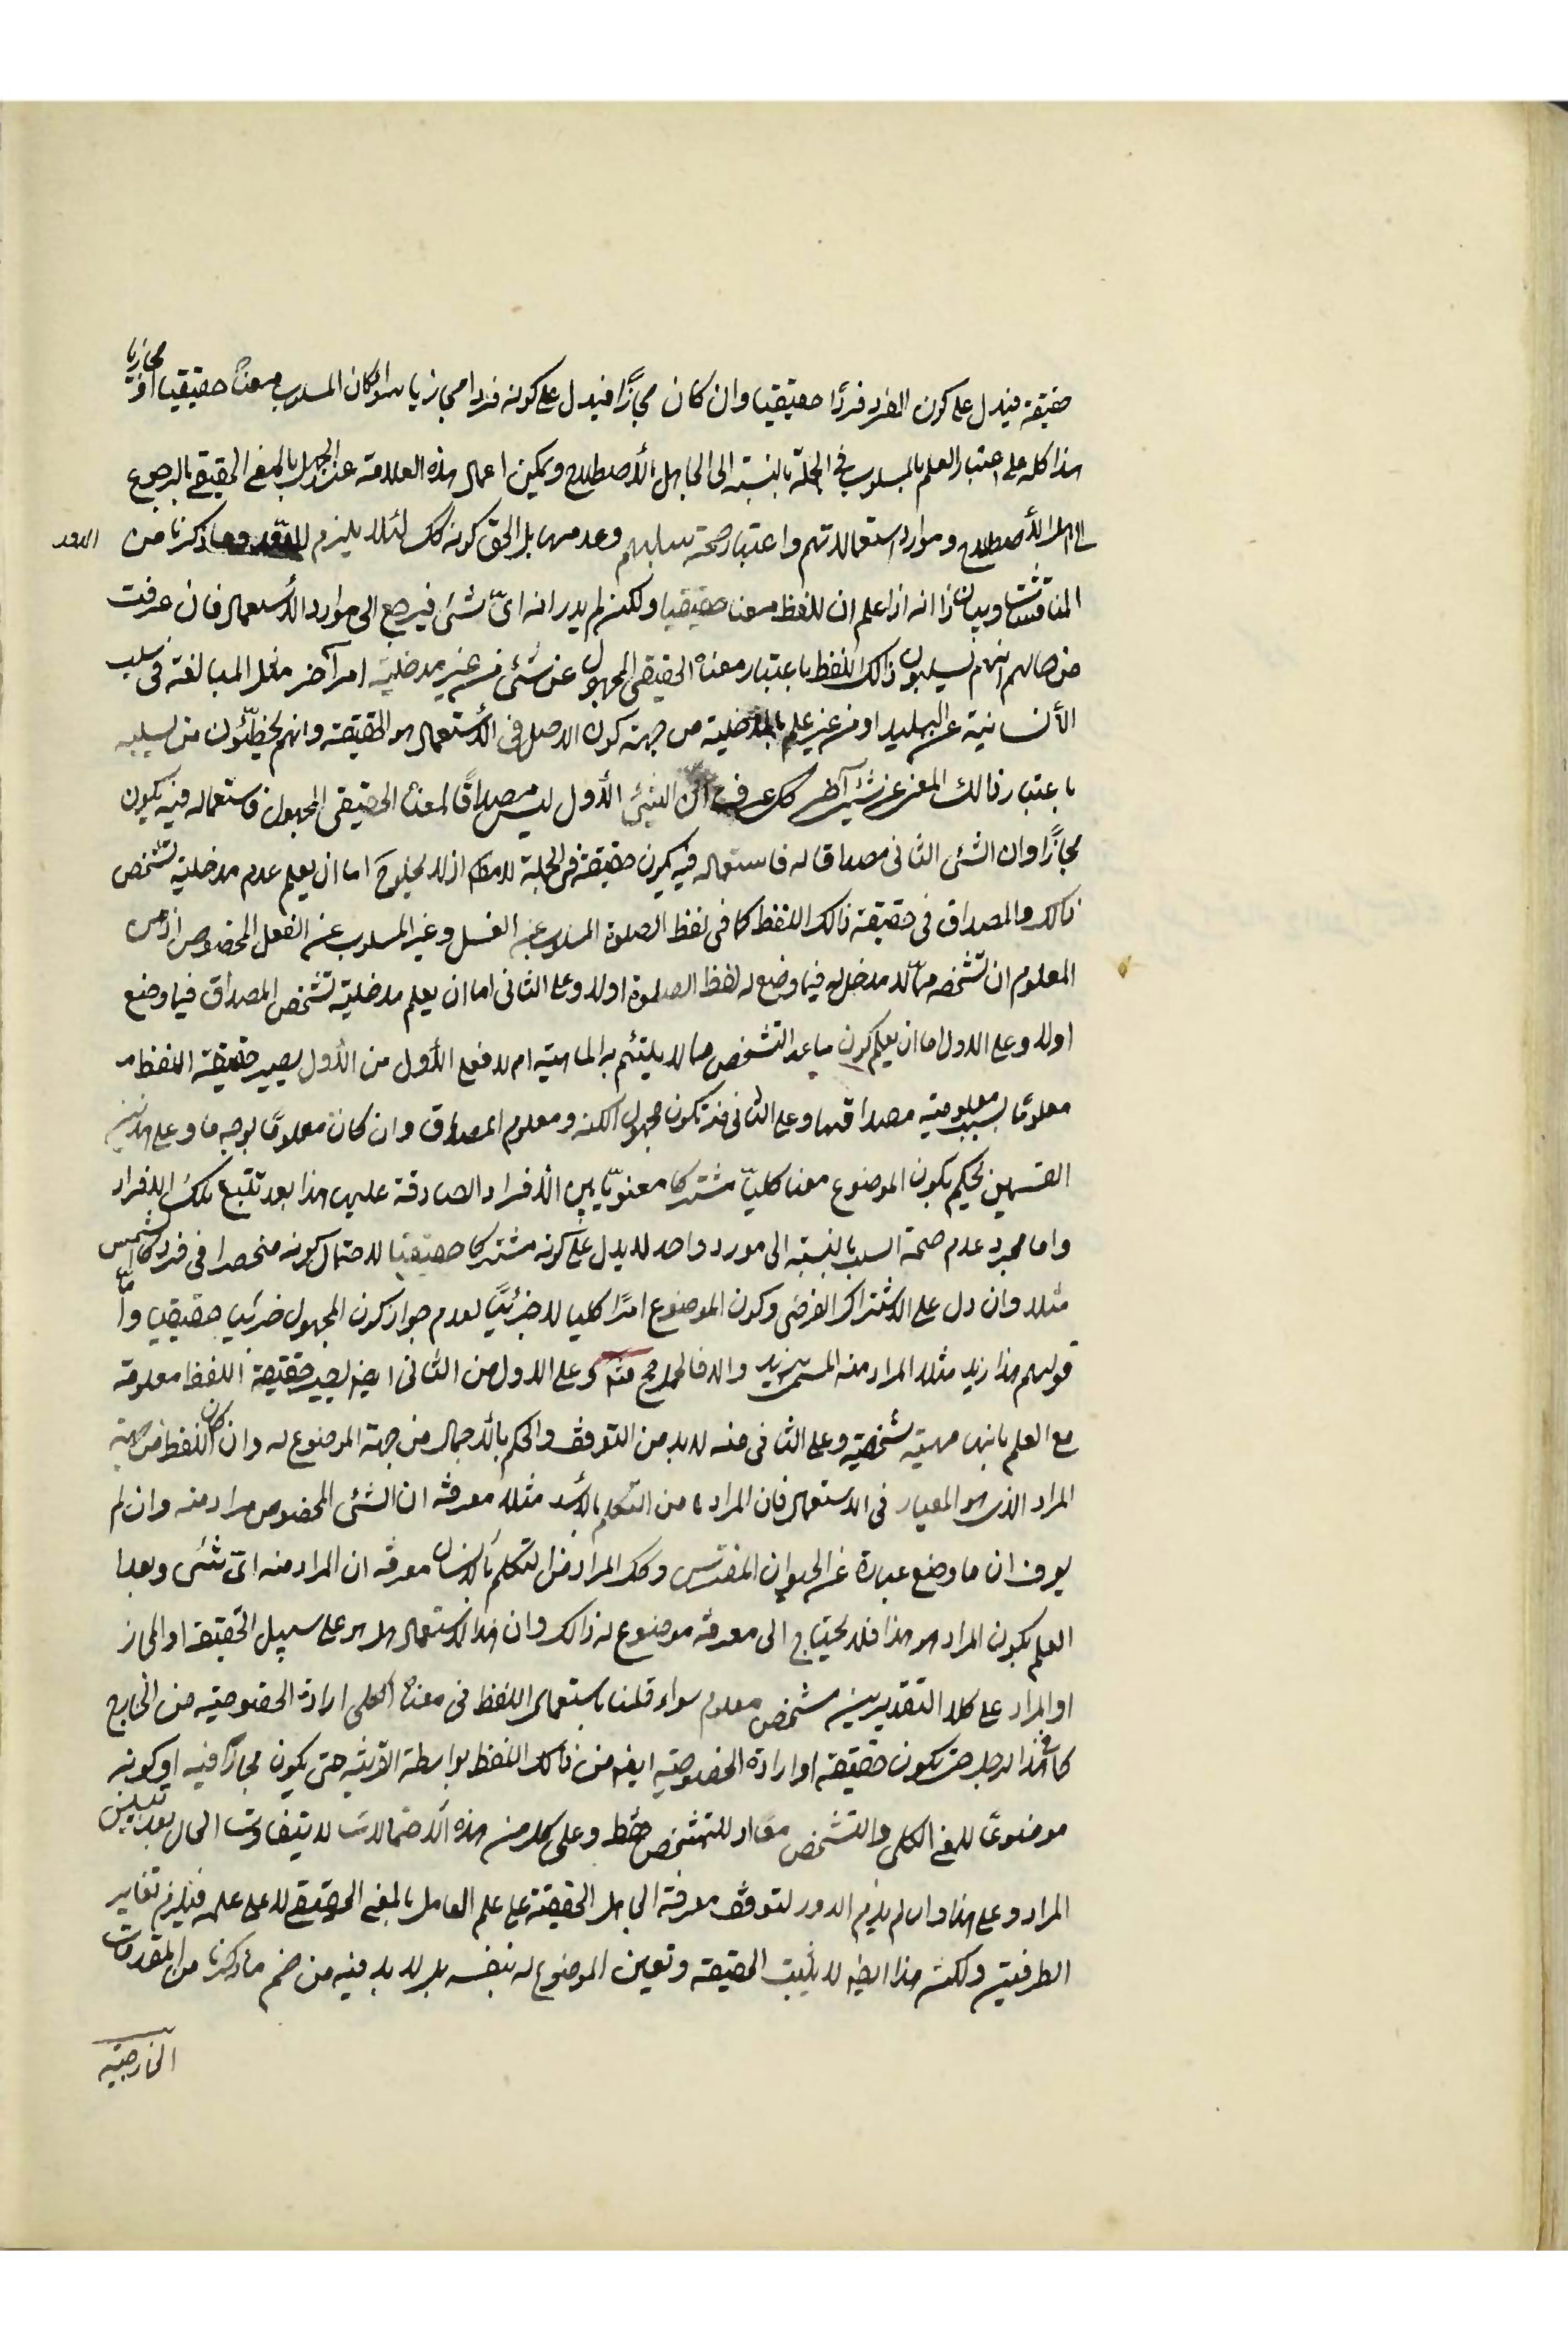 حقيقة فيدل على كون الفرد فردًا حقيقيا وان كان مجازًا فيدل على كونه فردا مجازيا سواء كان المسلوب معناه حقيقيا او مجازيا
هذا كله على اعتبار العلم بالمسلوب في الجملة بالنسبة الى الجاهل بالأصطلاح ويمكن اعمال هذه العلامة عند الجهل بالمعنى الحقيقي بالرجوع
الى اهل الأصطلاح وموارد استعمالاتهم واعتبار صحة سلبهم وعدمها بل الحق كونه كك لئلا يلزم الدور وما ذكرنا من
المناقشات وبيان ذا انه اذا علم ان للفظ معنا حقيقيا ولكن لم يدر انه اىّ شئ فيرجع الى موارد الأستعمال فان عرفت
من حالهم انهم يسلبون ذالك اللفظ باعتبار معناه الحقيقى المجهول عن شئ من غير مدخلية امر آخر مثل المبالغة فى سلب
الأنسانية عن البليد او من غير علم بالمدخلية من جهة كون الاصل فى الأستعمال هو الحقيقة وانهم يخطّئون من يسلبه
باعتبار ذالك المعنى عن شئ آخر كك عرفت ان الشئ الأول ليس مصداقًا لمعناه الحقيقى المجهول فاستعماله فيه يكون
مجازًا وان الشئ الثانى مصداق له فاستعماله فيه يكون حقيقة فى الجملة لا مط اذ لا يخلو ح اما ان يعلم عدم مدخلية تشخص
ذالك المصداق فى حقيقة ذالك اللفظ كما فى لفظ الصلوة المسلوب عنه الغسل وغير المسلوب عنه الفعل المخصوص اذ من
المعلوم ان تشخصه مما لا مدخل له فيما وضع له لفظ الصلوة اولا وعلى الثانى اما ان يعلم مدخلية تشخص المصداق فيما وضع
اولا وعلى الاول اما ان يعلم كون ما عدا التشخص مما لا يلتئم به الماهية ام لا فعلى الأول من الأول يصير حقيقة اللفظ
معلومًا بسبب معلومية مصداقها وعلى الثانى منه تكون مجهول الكنه ومعلوم المصداق وان كان معلومًا بوجه ما وعلى هذين
القسمين يحكم بكون الموضوع معنا كليّا مشتركا معنويّا بين الأفراد الصادقة عليها هذا بعد تتبع تلك الافراد
واما مجرد عدم صحة السلب بالنسبة الى مورد واحد لا يدل على كونه مشتركا حقيقيا لاحتمال كونه منحصرا فى فرد كالشمس
مثلا وان دل على الاشتراك الفرضى وكون الموضوع امرًا كليا لا جزئيًا لعدم جواز كون المجهول جزئيا حقيقيا وامّا
قولهم هذا زيد مثلا المراد منه المسمى بزيد والا فالحمل مج منه وعلى الاول من الثانى ايضا يصير حقيقة اللفظ معلومة
مع العلم بانها مهية شخصية وعلى الثانى منه لا بد من التوقف والحكم بالأجمال من جهة الموضوع له وان كان اللفظ من جهة
المراد الذى هو المعيار فى الاستعمال فان المراد من التكلم بالأسد مثلا معرفة ان الشئ المخصوص مراد منه وان لم
يعرف ان ما وضع عبارة عن الحيوان المفترس وكك المراد من التكلم بالانسان معرفة ان المراد منه اىّ شئ وبعد
العلم بكون المراد هو هذا فلا يحتاج الى معرفة موضوع له ذالك وان هذا الاستعمال هل هو على سبيل الحقيقة او المجاز
او المراد على كلا التقديرين مشخص معلوم سواء قلنا باستعمال اللفظ فى معناه الكلى ارادة الخصوصية من الخارج
كما فى هذا الرجل حتى يكون حقيقة او ارادة الخصوصية ايضا من ذالك اللفظ بواسطة القرينة حتى يكون مجازا فيه او كونه
موضوعًا للمعنى الكلى والتشخص معًا او للتشخص فقط وعلى كل من هذه الأحتمالات لا يتفاوت الحال بعد تبين
المراد وعلى هذا وان لم يلزم الدور لتوقف معرفة الجاهل الحقيقة على علم العامل بالمعنى الحقيقي لا على علمه فيلزم تغاير
الطرفين ولكن هذا ايضا لا يثبت الحقيقة وتعين الموضوع له بنفسه بل لا بد فيه من ضم ما ذكرنا من المقدمات
الخارجية